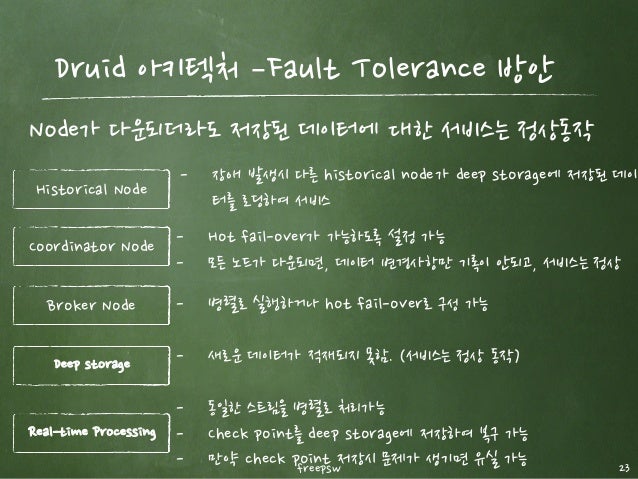 Druid 아키텍처 -Fault Tolerance 방안
Node가 다운되더라도 저장된 데이터에 대한 서비스는 정상동작
Historical Node
- 장애 발생시 다른 historical node가 deep storage에 저장된 데이
터를 로딩하여 서비스
Coordinator Node
- Hot fail-over가 가능하도록 설정 가능
- 모든 노드가 다운되면, 데이터 변경사항만 기록이 안되고, 서비스는 정상
Broker Node
- 병렬로 실행하거나 hot fail-over로 구성 가능
Deep storage
- 새로운 데이터가 적재되지 못함. (서비스는 정상 동작)
Real-time Processing
- 동일한 스트림을 병렬로 처리가능
- Check point를 deep storage에 저장하여 복구 가능
- 만약 check point 저장시 문제가 생기면 유실 가능
freepsw
23